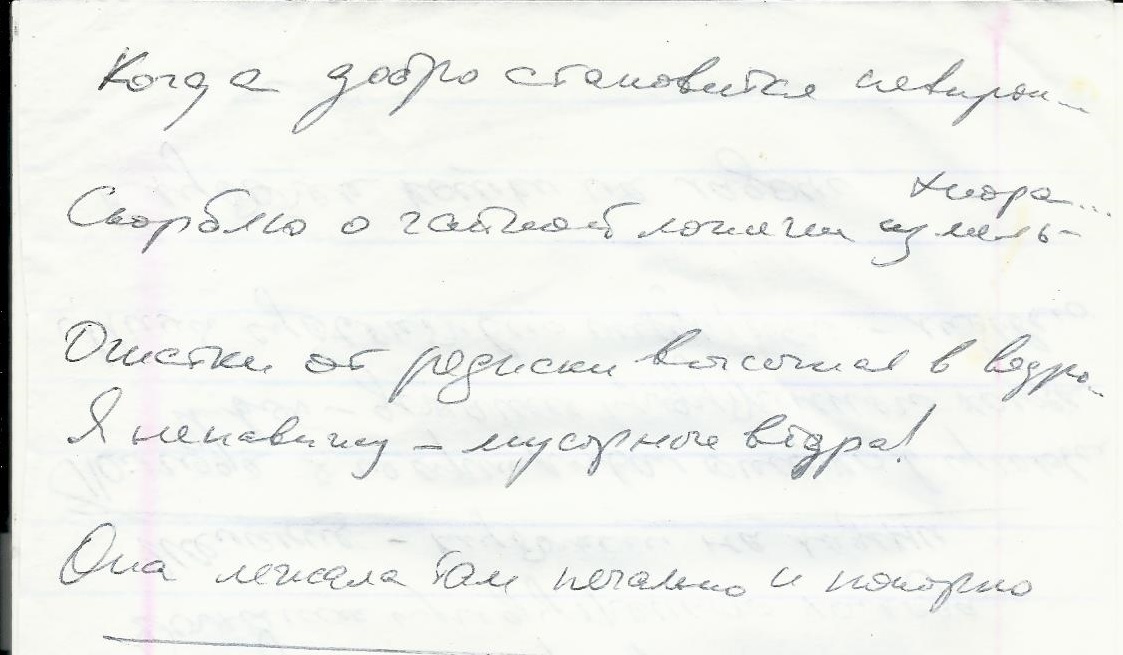 Когда добро становится
Скорблю о чайной ложечки
Очистки от редиски высыпая в ведро...
Я ненавижу – мусорные вёдра!
Она лежала там печально и покорно